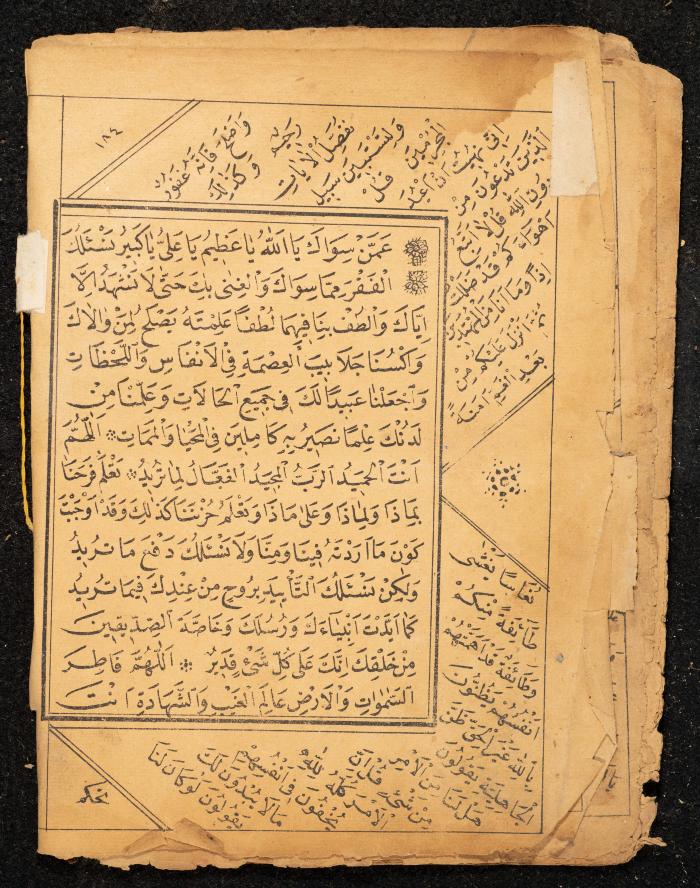 ١٨٤
عَمَّنْ سِوَاكَ يَا اَللهُ يَا عَظِيمُ يَا عَلِىُّ يَا كَبِيرُ نَسْئَلُكَ
الْفَقْرَ مِمَّا سِوَاكَ وَالْغِنٰى بِكَ حَتّٰى لَا نَشْهَدَ اِلَّا
اِيَّاكَ وَالْطُفْ بِنَا فِيهِمَا لُطْفًا عَلِمْتَهُ يَصْلُحُ لِمَنْ وَالَاكَ
وَاكْسُنَا جَلَابِيبَ الْعِصْمَةِ فِى الْاَنْفَاسِ وَاللَّحَظَاتِ
وَاجْعَلْنَا عَبِيدًا لَكَ فِى جَمِيعِ الْحَالَاتِ وَعَلِّمْنَا مِنْ
لَدُنْكَ عِلْمًا نَصِيرُ بِهِ كَامِلِينَ فِى الْمَحْيَا وَالْمَمَاتِ اَللّٰهُمَّ
اَنْتَ الْحَمِيدُ الرَّبُّ الْمَجِيدُ الْفَعَّالُ لِمَا تُرِيدُ تَعْلَمُ فَرَحَنَا
بِمَاذَا وَلِمَاذَا وَعَلٰى مَاذَا وَتَعْلَمُ حُزْنَنَا كَذٰلِكَ وَقَدْ اَوْجَبْتَ
كَوْنَ مَا اَرَدْتَهُ فِينَا وَمِنَّا وَلَا نَسْئَلُكَ دَفْعَ مَا تُرِيدُ
وَلٰكِنْ نَسْئَلُكَ التَّأْيِيدَ بِرُوحٍ مِنْ عِنْدِكَ فِيمَا تُرِيدُ
كَمَا اَيَّدْتَ اَنْبِيَاءَكَ وَرُسُلَكَ وَخَاصَّةَ الصِّدِّيقِينَ
مِنْ خَلْقِكَ اِنَّكَ عَلٰى كُلِّ شَىْءٍ قَدِيرٌ اَللّٰهُمَّ فَاطِرَ
السَّمٰوَاتِ وَالْاَرْضِ عَالِمَ الْغَيْبِ وَالشَّهَادَةِ اَنْتَ
وَاَصْلَحَ فَاِنَّهُ غَفُورٌ
رَحِيمٌ وَكَذٰلِكَ
نُفَصِّلُ الْاٰيَاتِ
وَلِتَسْتَبِينَ سَبِيلُ
الْمُجْرِمِينَ قُلْ
اِنِّى نُهِيتُ اَنْ اَعْبُدَ
الَّذِينَ تَدْعُونَ مِنْ
دُونِ اللهِ قُلْ لَا اَتَّبِعُ
اَهْوَاءَكُمْ قَدْ ضَلَلْتُ
اِذًا وَمَا اَنَا مِنَ الْمُهْتَدِينَ
ثُمَّ اَنْزَلَ عَلَيْكُمْ مِنْ
بَعْدِ الْغَمِّ اَمَنَةً
نُعَاسًا يَغْشٰى
طَائِفَةً مِنْكُمْ
وَطَائِفَةٌ قَدْ اَهَمَّتْهُمْ
اَنْفُسُهُمْ يَظُنُّونَ
بِاللهِ غَيْرَ الْحَقِّ ظَنَّ
الْجَاهِلِيَّةِ يَقُولُونَ
هَلْ لَنَا مِنَ الْاَمْرِ
مِنْ شَىْءٍ قُلْ اِنَّ
الْاَمْرَ كُلَّهُ لِلّٰهِ
يُخْفُونَ فِى اَنْفُسِهِمْ
مَا لَا يُبْدُونَ لَكَ
يَقُولُونَ لَوْ كَانَ لَنَا
تحكم